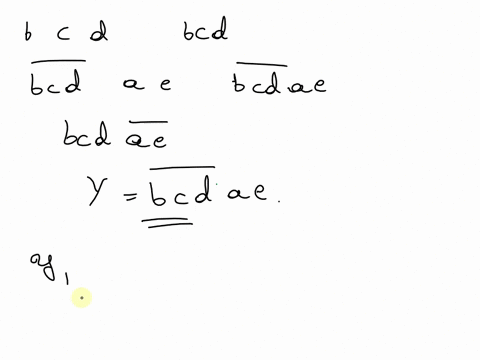 b c d bcd
b̅c̅d̅ a e b̅c̅d̅ ae
bcd a̅e̅
Y = b̅c̅d̅ ae.